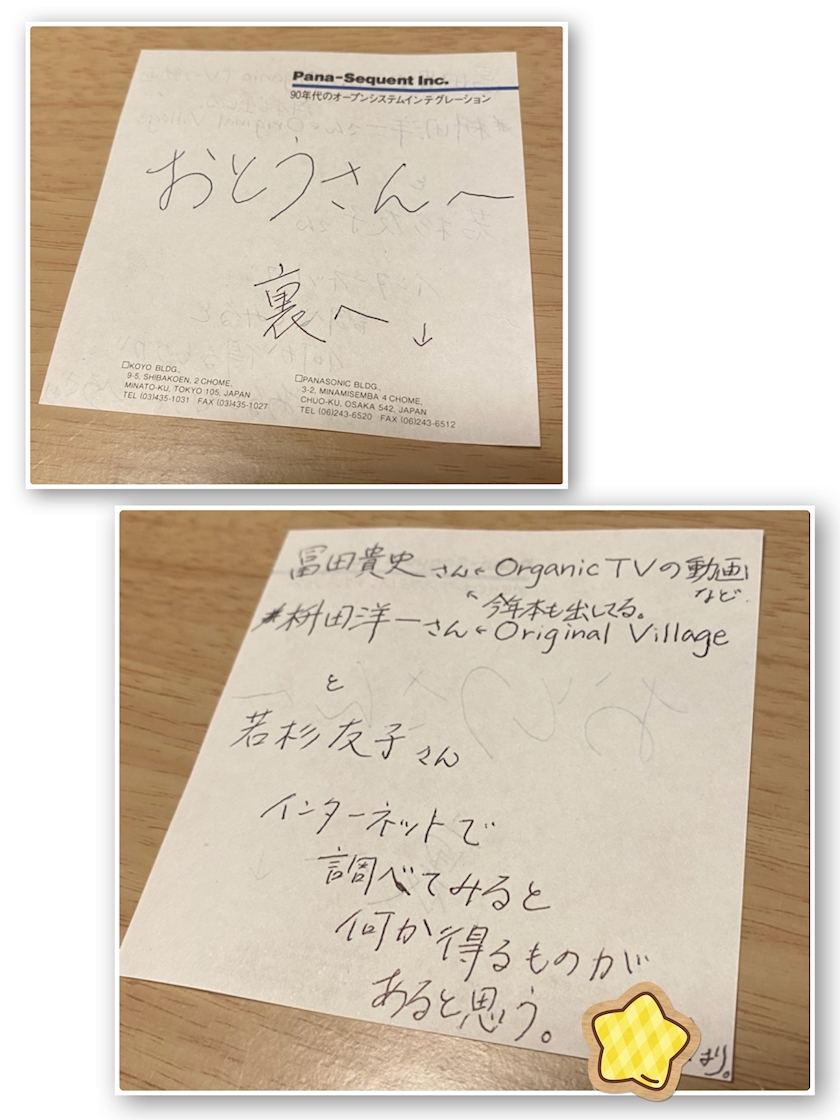 Pana-Sequent Inc.
90年代のオープンシステムインテグレーション
おとうさんへ
裏へ↓
□KOYO BLDG.,
9-5, SHIBAKOEN, 2 CHOME,
MINATO-KU, TOKYO 105, JAPAN
TEL (03)435-1031 FAX (03)435-1027
□PANASONIC BLDG.,
3-2, MINAMISEMBA 4 CHOME,
CHUO-KU, OSAKA 542, JAPAN
TEL (06)243-6520 FAX (06)243-6512
冨田貴史さん← Organic TVの動画
など
↖今年本も出してる。
*枡田洋一さん← Original Village
と
若杉友子さん
インターネットで
調べてみると
何か得るものが
あると思う。
より。